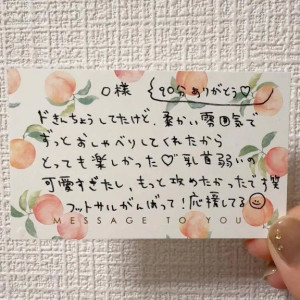 O様
90分ありがとう♡
ドきんちょうしてたけど、柔かい雰囲気で
ずっとおしゃべりしてくれたから
とっても楽しかった♡乳首弱いの
可愛すぎたし、もっと攻めたかったです笑
フットサルがんばって!応援してる☺
MESSAGE TO YOU